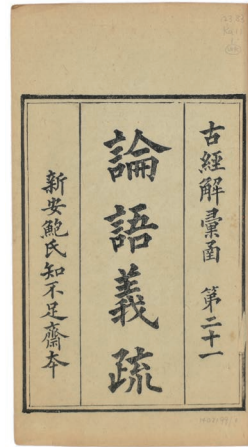 古經解彙函 第二十一
論語義疏
新安鮑氏知不足齋本